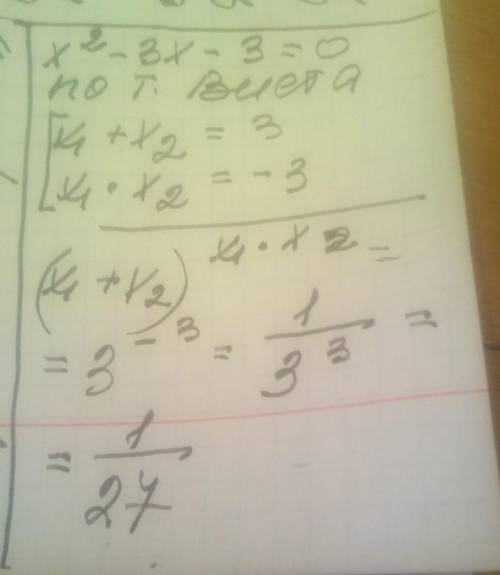 x² - 3x - 3 = 0
по т. Виета
[x₁ + x₂ = 3
x₁ · x₂ = -3
(x₁ + x₂)^(x₁ · x₂) =
= 3⁻³ = 1/3³ =
= 1/27